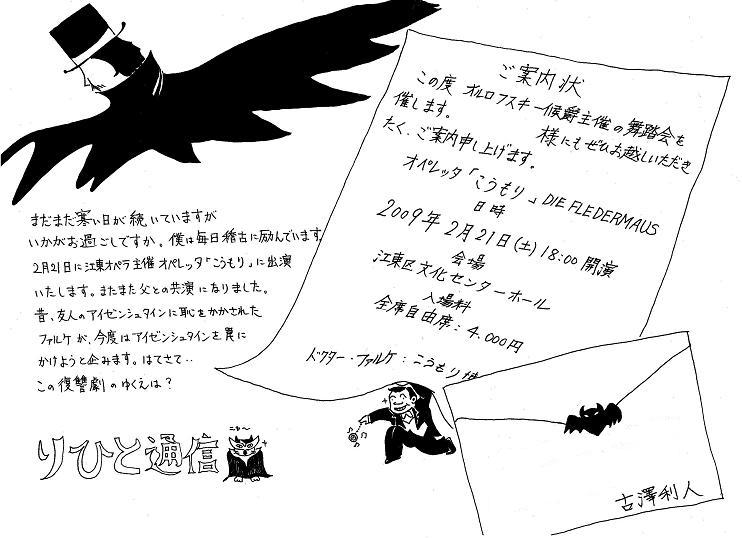 ご案内状
この度 オルロフスキー候爵主催の舞踏会を
催します。 様にもぜひお越しいただき
たく、ご案内申し上げます。
オペレッタ「こうもり」DIE FLEDERMAUS
日時
2009年2月21日(土)18:00開演
会場
江東区文化センターホール
入場料
全席自由席:4.000円
ドクター・ファルケ:こうもり博
まだまだ寒い日が続いていますが
いかがお過ごしですか。僕は毎日稽古に励んでいます。
2月21日に江東オペラ主催オペレッタ「こうもり」に出演
いたします。またまた父との共演になりました。
昔、友人のアイゼンシュタインに恥をかかされた
ファルケが、今度はアイゼンシュタインを罠に
かけようと企みます。はてさて‥
この復讐劇のゆくえは?
りひと通信
ニャ〜
古澤利人